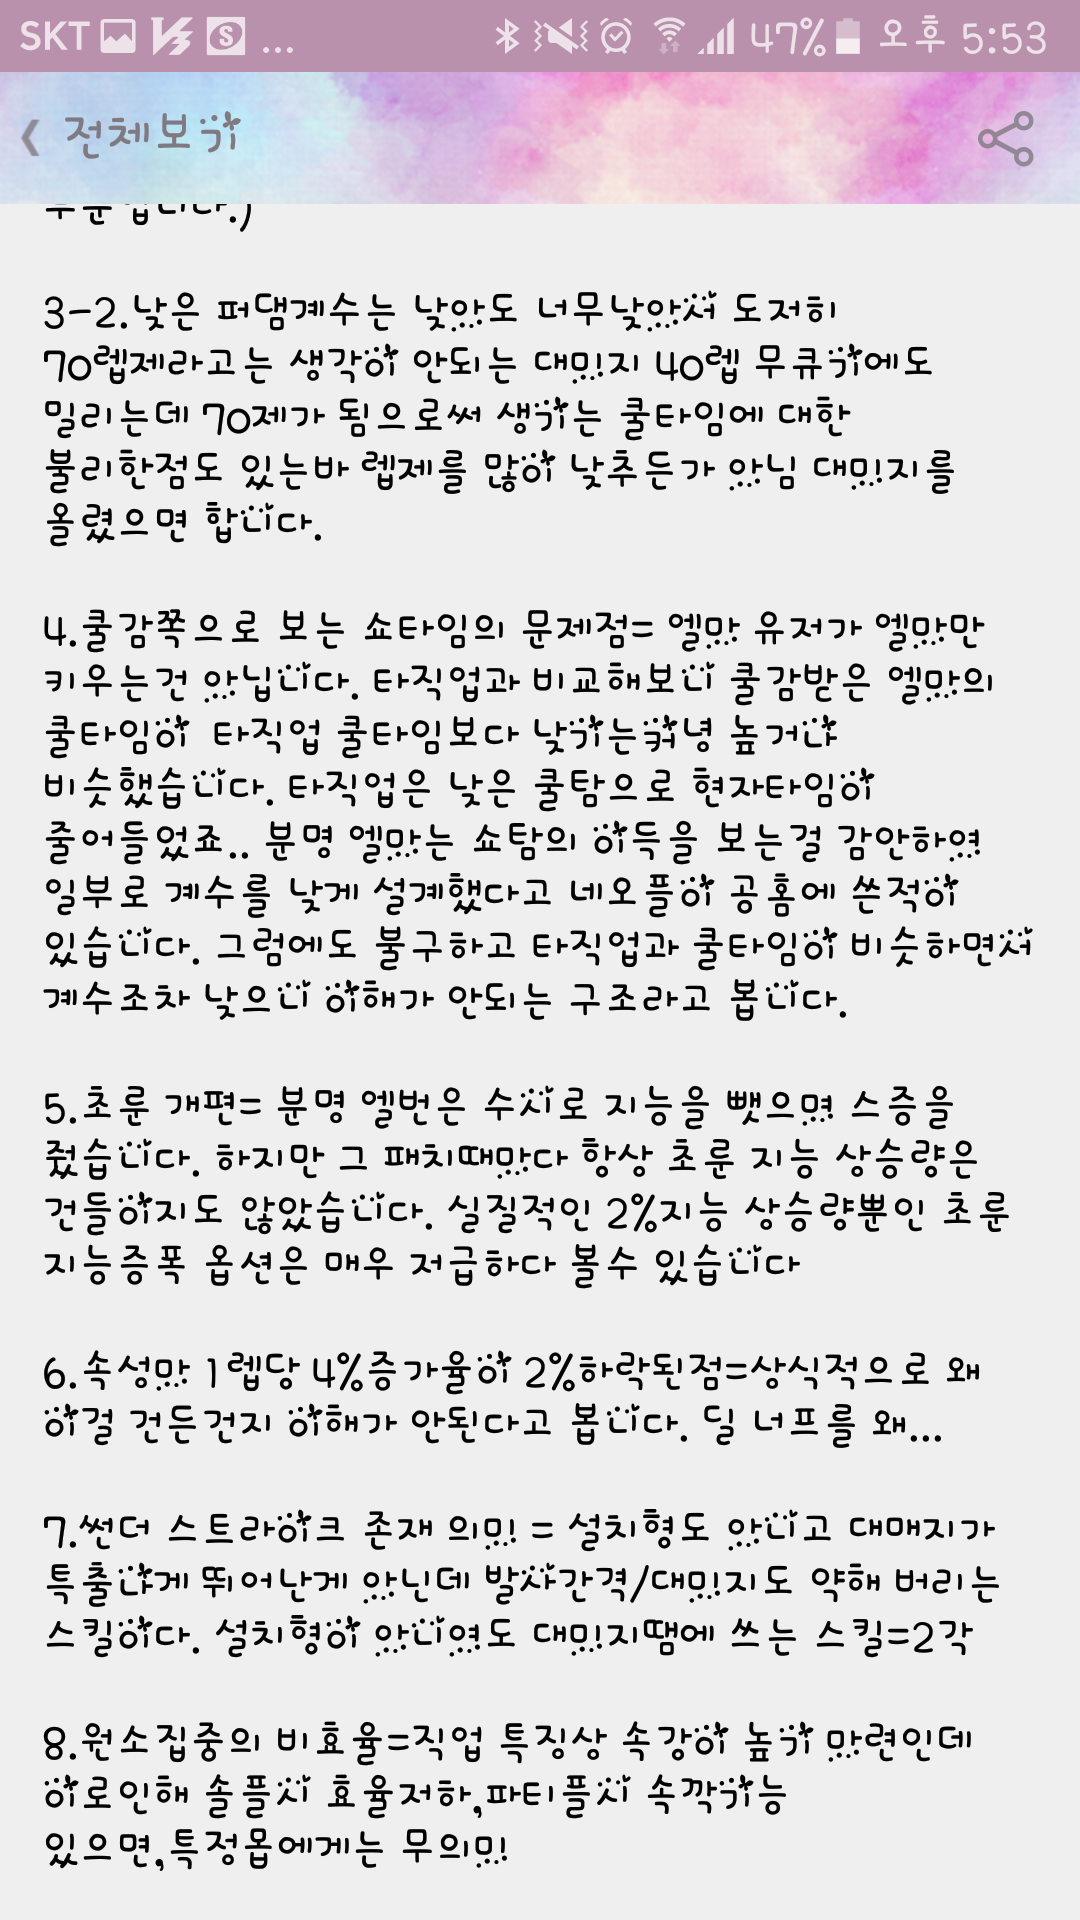 SKT ... 47% 오후 5:53
전체보기
3-2.낮은 퍼댐계수는 낮아도 너무낮아서 도저히
70렙제라고는 생각이 안되는 대미지 40렙 무큐기에도
밀리는데 70제가 됨으로써 생기는 쿨타임에 대한
불리한점도 있는바 렙제를 많이 낮추든가 아님 대미지를
올렸으면 합니다.
4.쿨감쪽으로 보는 쇼타임의 문제점= 엘마 유저가 엘마만
키우는건 아닙니다. 타직업과 비교해보니 쿨감받은 엘마의
쿨타임이 타직업 쿨타임보다 낮기는커녕 높거나
비슷했습니다. 타직업은 낮은 쿨탐으로 현자타임이
줄어들었죠.. 분명 엘마는 쇼탐의 이득을 보는걸 감안하여
일부로 계수를 낮게 설계했다고 네오플이 공홈에 쓴적이
있습니다. 그럼에도 불구하고 타직업과 쿨타임이 비슷하면서
계수조차 낮으니 이해가 안되는 구조라고 봅니다.
5.초룬 개편= 분명 엘번은 수시로 지능을 뺏으며 스증을
줬습니다. 하지만 그 패치때마다 항상 초룬 지능 상승량은
건들이지도 않았습니다. 실질적인 2%지능 상승량뿐인 초룬
지능증폭 옵션은 매우 저급하다 볼수 있습니다
6.속성마 1렙당 4%증가율이 2%하락된점=상식적으로 왜
이걸 건든건지 이해가 안된다고 봅니다. 딜 너프를 왜...
7.썬더 스트라이크 존재 의미 = 설치형도 아니고 대매지가
특출나게 뛰어난게 아닌데 발사간격/대미지도 약해 버리는
스킬이다. 설치형이 아니여도 대미지땜에 쓰는 스킬=2각
8.원소집중의 비효율=직업 특징상 속강이 높기 마련인데
이로인해 솔플시 효율저하,파티플시 속깍기능
있으면,특정몹에게는 무의미